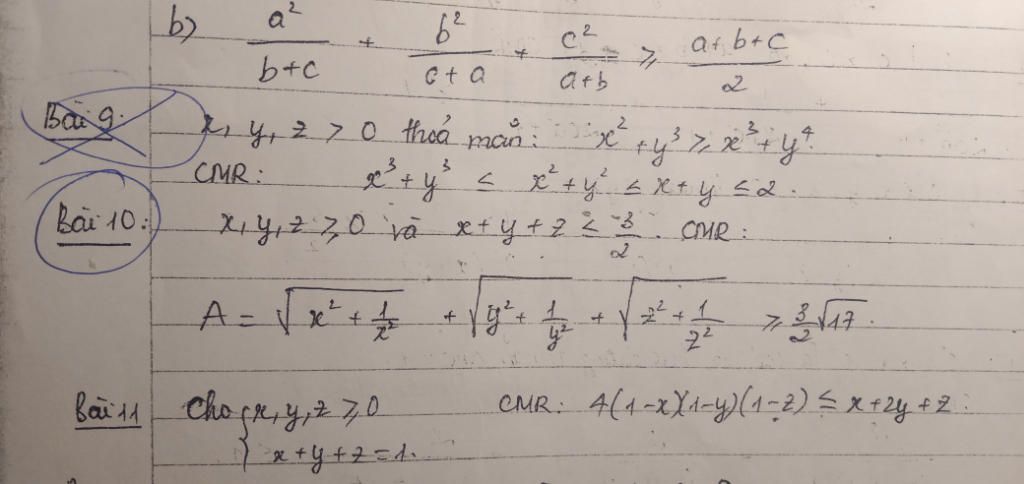 b) a²/(b+c) + b²/(c+a) + c²/(a+b) ≥ (a+b+c)/2
Bài 9: x, y, z > 0 thoả mãn: x² + y³ ≥ x³ + y⁴.
CMR: x³ + y³ ≤ x² + y² ≤ x + y ≤ 2.
Bài 10: x, y, z ≥ 0 và x + y + z ≤ 3/2. CMR:
A = √(x² + 1/x²) + √(y² + 1/y²) + √(z² + 1/z²) ≥ 3/2 √17.
Bài 11 Cho { x, y, z ≥ 0 CMR: 4(1-x)(1-y)(1-z) ≤ x + 2y + z.
x + y + z = 1.